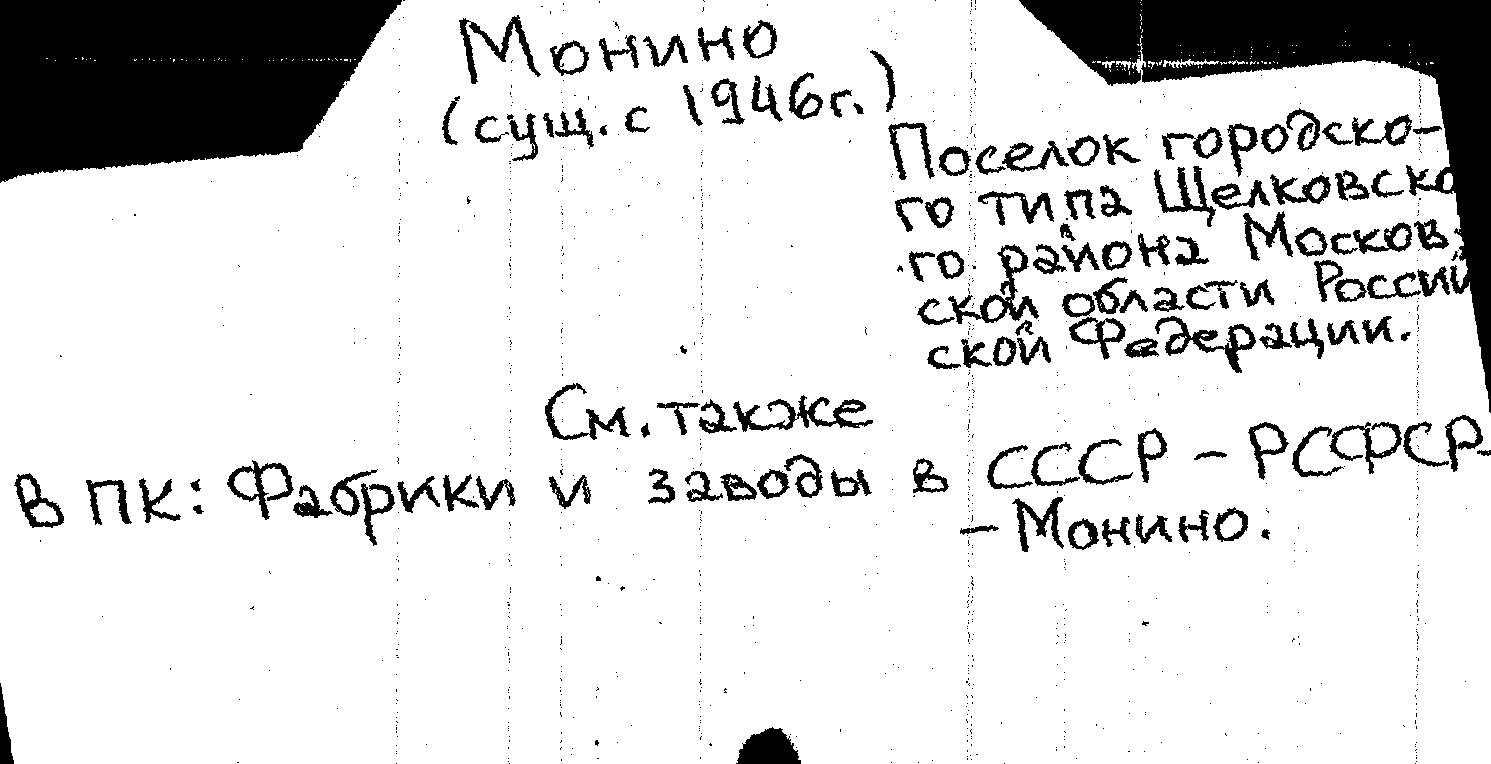 Монино
(сущ. с 1946г.)
Поселок городско-
го типа Щелковско
го района Москов-
ской области Россий
ской Федерации.
См. также
В ПК: Фабрики и заводы в СССР - РСФСР-
- Монино.